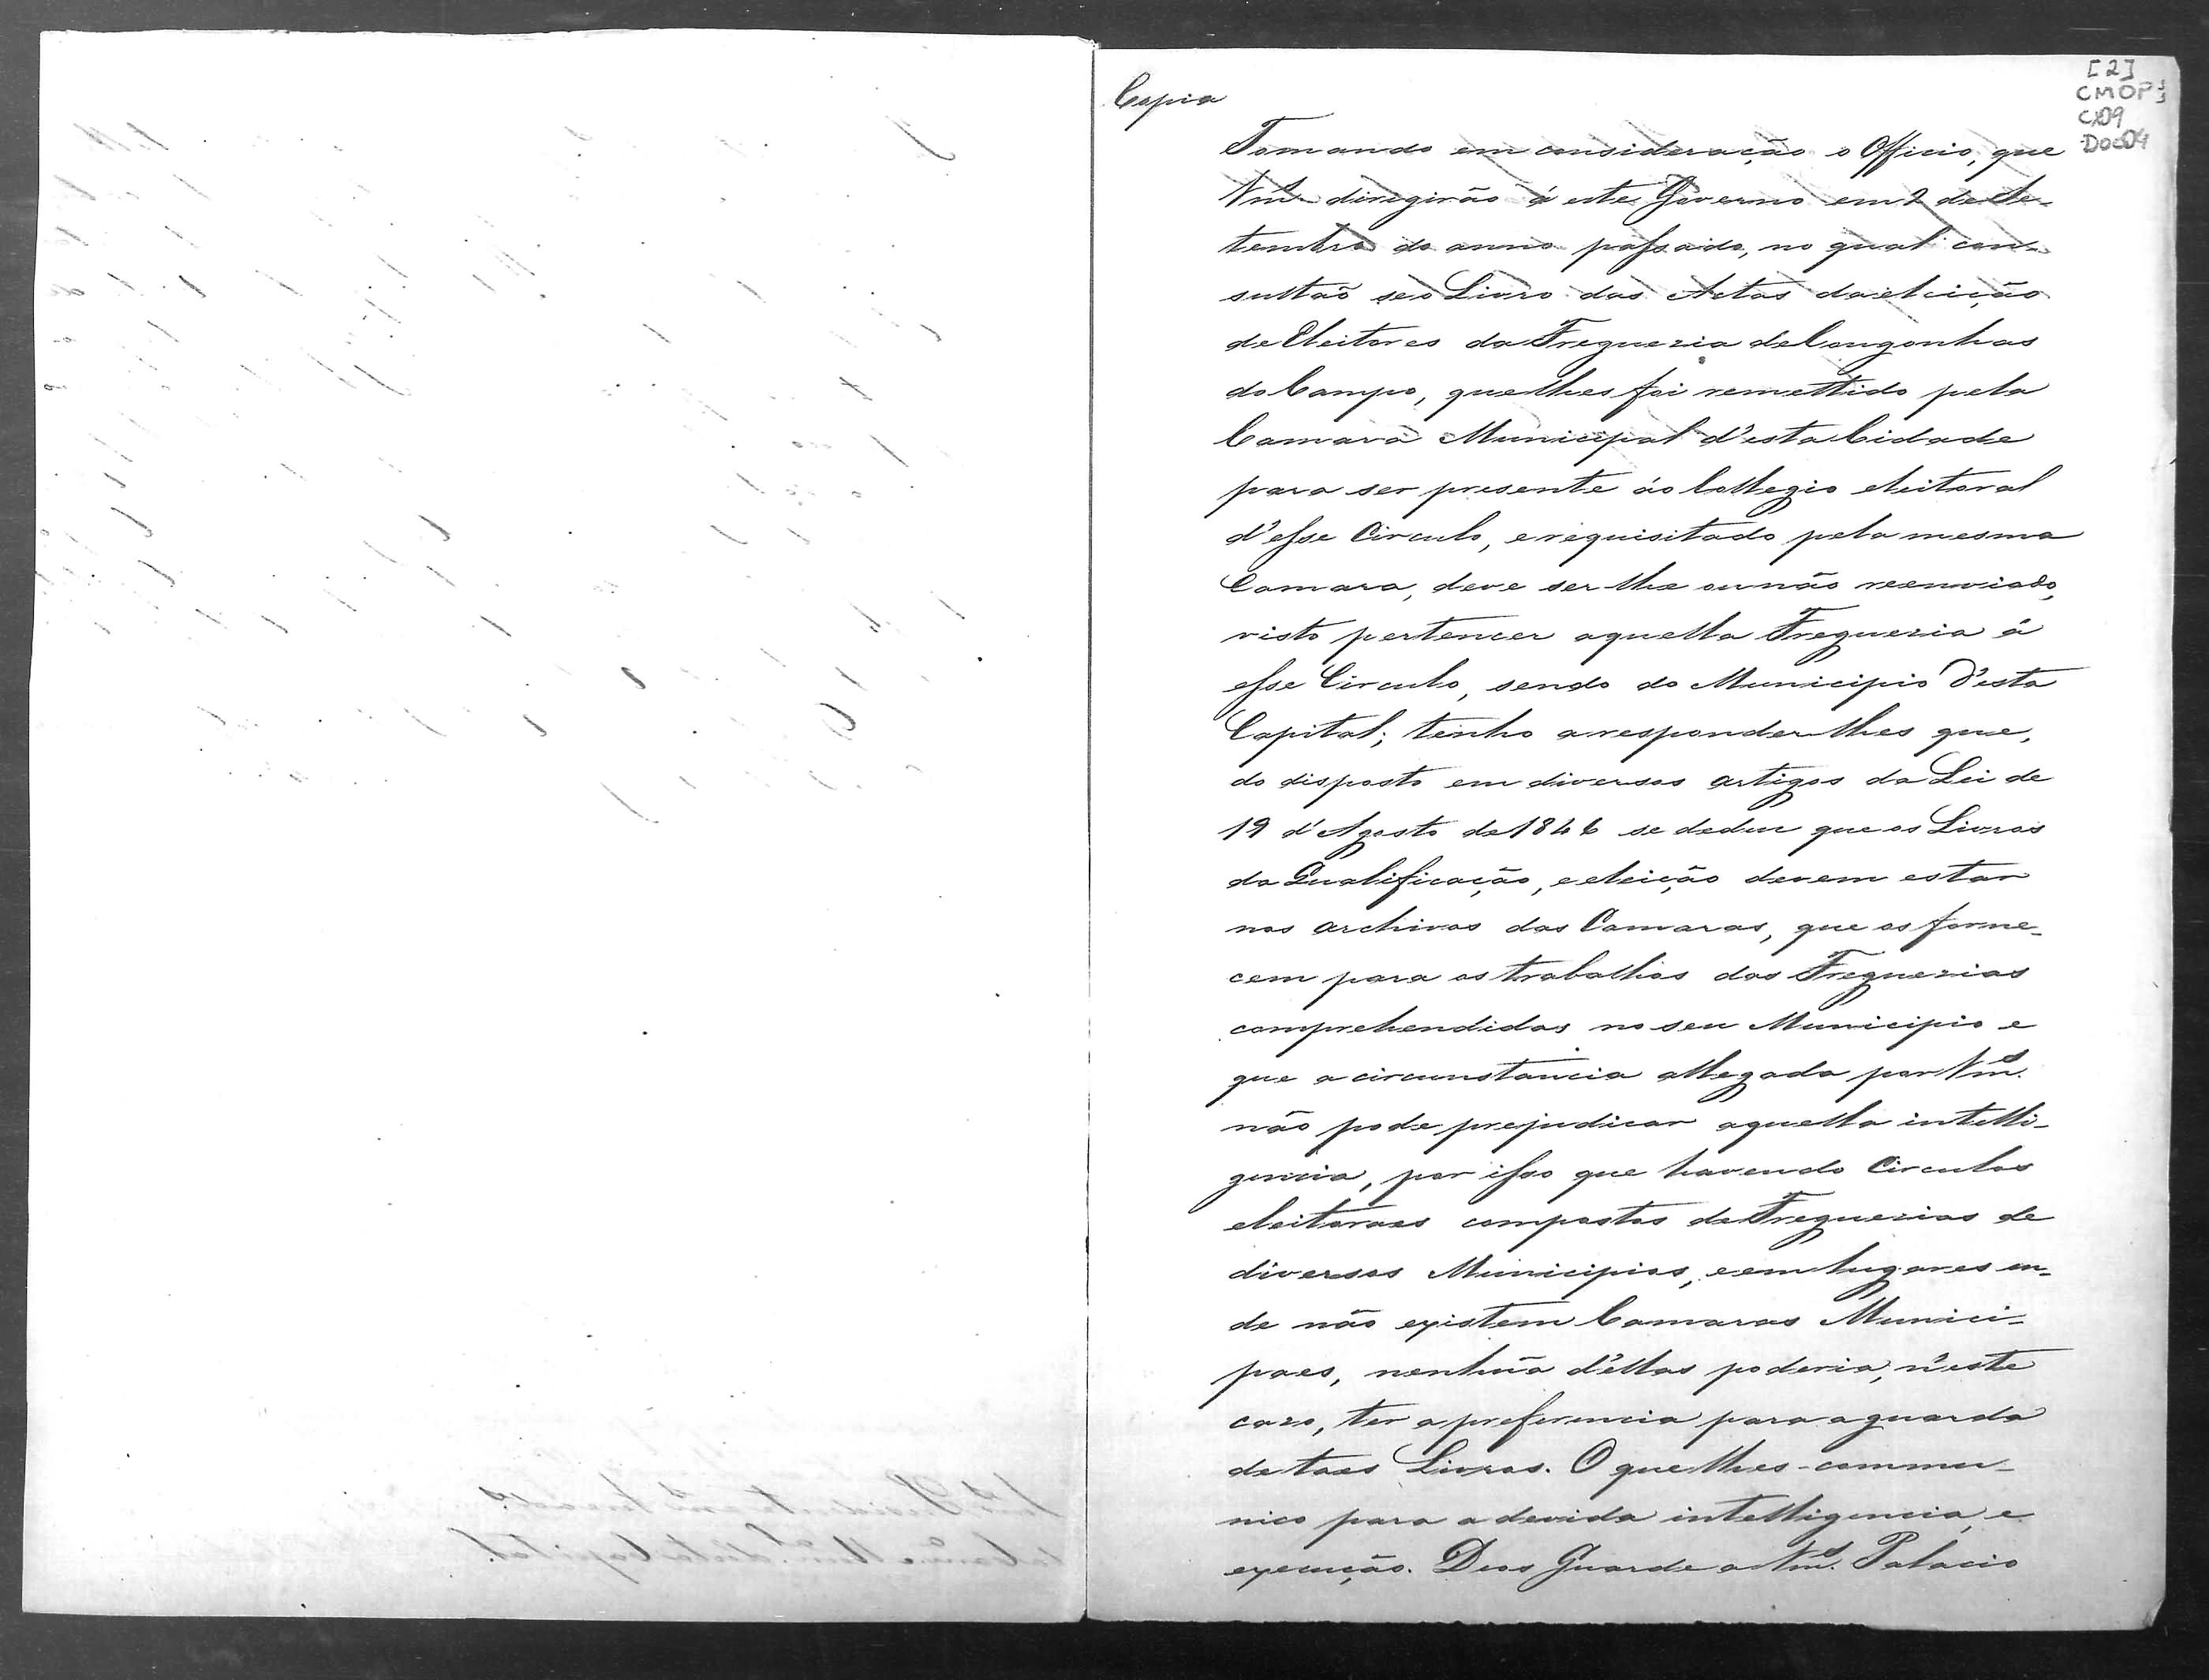 Copia
[2]
CMOP
CX09
DOC04
Tomando em consideração o Officio, que
Vm.ces dirigirão á este Governo em 2 de Se-
tembro do anno passado, no qual con-
sultaõ se o Livro das Actas da eleição
de Eleitores da Freguezia de Congonhas
do Campo, que lhes foi remettido pela
Camara Municipal d'esta Cidade
para ser presente áo Collegio eleitoral
d'esse Circulo, e requisitado pela mesma
Camara, deve ser lhe ou não reenviado,
visto pertencer aquella Freguezia á
esse Circulo, sendo do Municipio d'esta
Capital; tenho a responder lhes que,
do disposto em diversos artigos da Lei de
19 d'Agosto de 1846 se deduz que os Livros
da Qualificação, e eleição devem estar
nos archivos das Camaras, que os forne-
cem para os trabalhos das Freguezias
comprehendidas no seu Municipio e
que a circunstancia allegada por Vm.ces
não pode prejudicar aquella intelli-
gencia, por isso que havendo Circulos
eleitoraes compostos de Freguezias de
diversos Municipios, e em lugares on-
de não existem Camaras Munici-
paes, nenhũa d'ellas poderia, n'este
cazo, ter a preferencia para a guarda
de taes Livros. O que lhes commu-
nico para a devida intelligencia, e
execução. Deos Guarde a Vm.ces Palacio